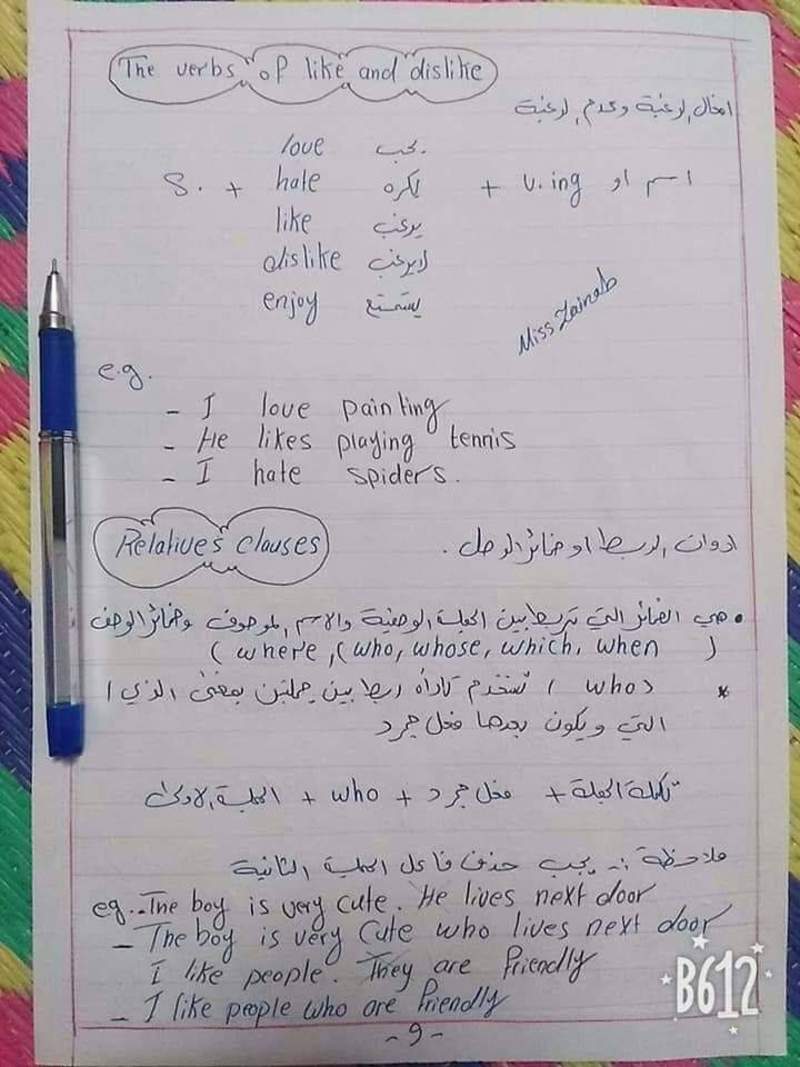 The verbs of like and dislike
افعال الرغبة وعدم الرغبة
love يحب
S. + hate يكره + v. ing اسم او
like يرغب
dislike لايرغب
enjoy يستمتع
Miss Zainab
e.g.
- I love painting
- He likes playing tennis
- I hate spiders.
Relatives clauses
ادوات الربط او ضمائر الوصل .
• هي الضمائر التي تربط بين الجملة الوصفية والاسم الموصوف وضمائر الوصف
( where, (who, whose, which, when )
* (who) تستخدم كأداة ربط بين جملتين بمعنى الذي /
التي ويكون بعدها فعل مجرد
الجملة الاولى + who + فعل مجرد + تكملة الجملة
ملاحظة :- يجب حذف فاعل الجملة الثانية
eg.- The boy is very cute. He lives next door
- The boy is very cute who lives next door
I like people. They are friendly
- I like people who are friendly
- 9 -
B612